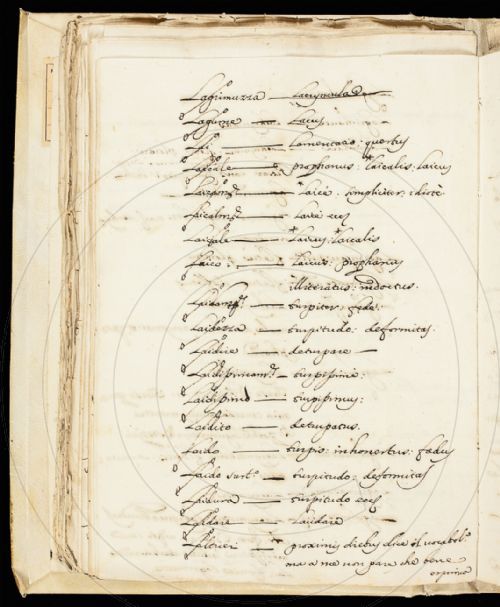 Lagrimuzza — Lacrymula
Lagune — Lacus
Lai — Lamentatio: questus
Laicale — prophanus: laicalis: laicus
— Laicè: simpliciter: idiotè
Laicalm.te — Laicè eos
Laicale — Laicus: Laicalis
Laico: — Laicus: prophanus
illiteratus: indoctus
Laidam.te — turpiter: fede:
Laidezza — turpitudo: deformitas
Laidire — deturpare —
Laidissimam.te — turpissimè:
Laidissimo — turpissimus:
Laidito — deturpatus.
Laido — turpis: inhonestus: fedus
Laido sust.o — turpitudo: deformitas
Laidura — turpitudo eos
Laldare — laudare
— proximis diebus dice il vocabol.o
ma a me non pare che bene
esprima